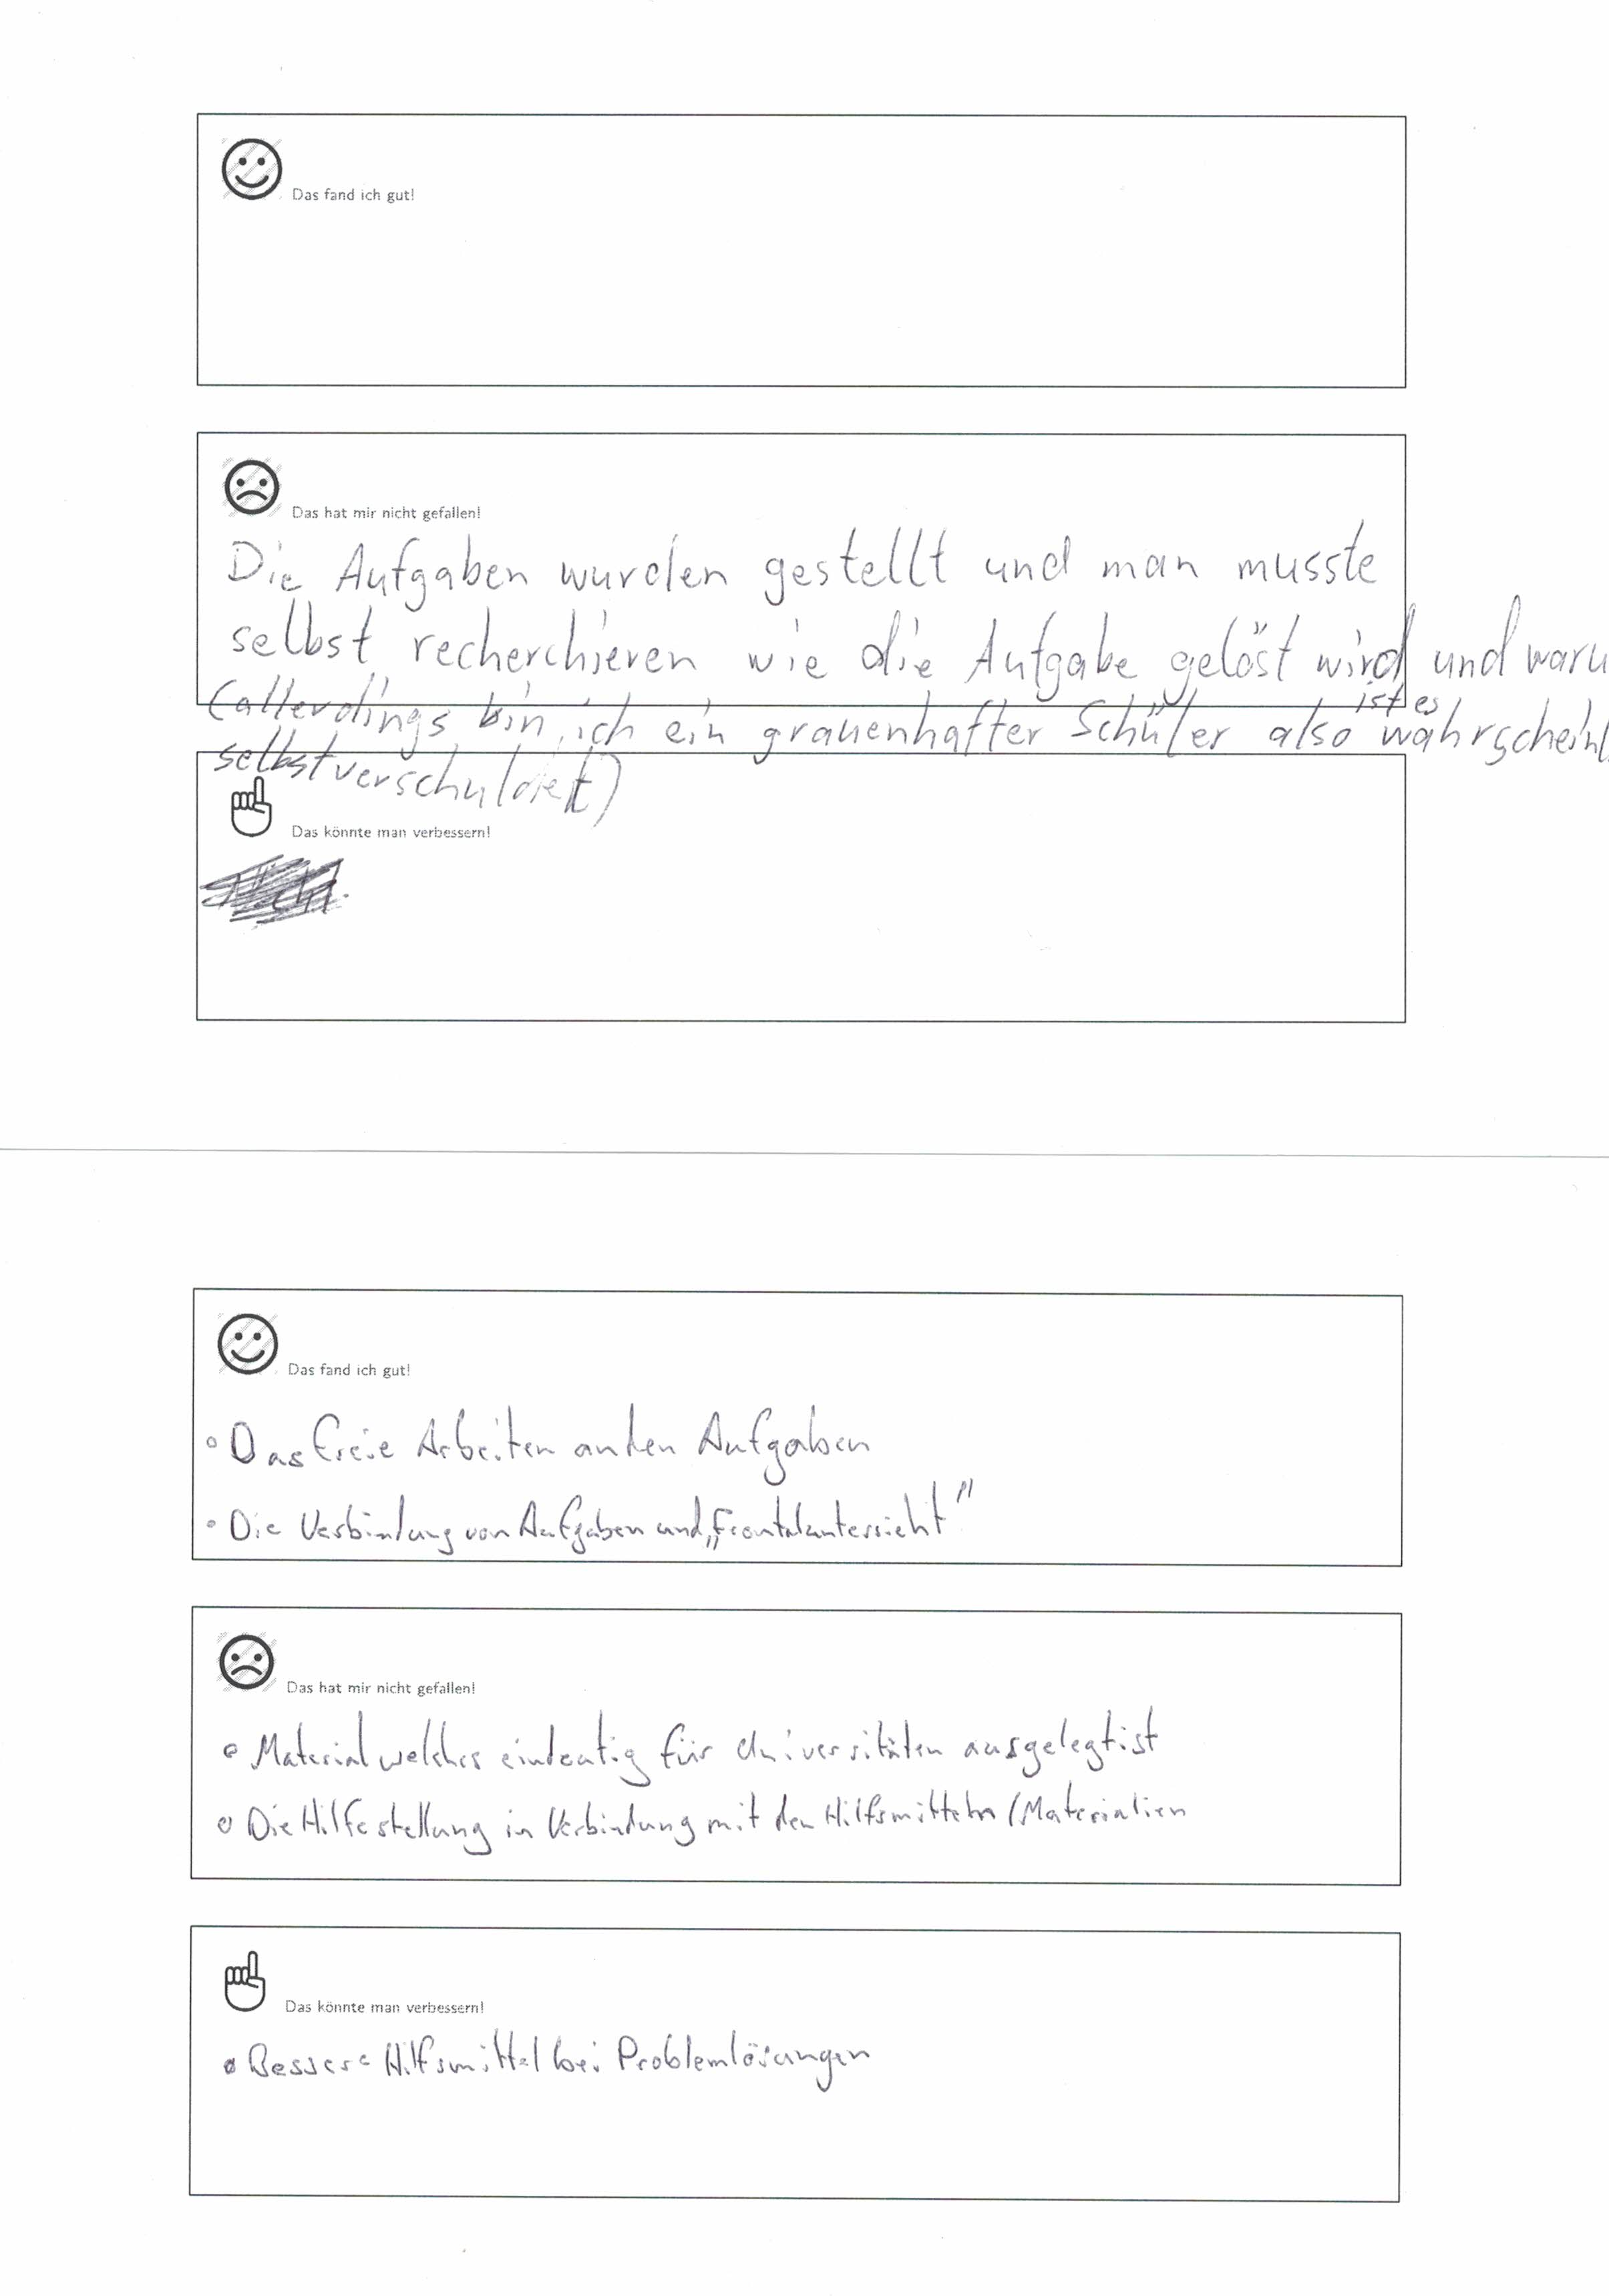 Das fand ich gut!
Das hat mir nicht gefallen!
Die Aufgaben wurden gestellt und man musste
selbst recherchieren wie die Aufgabe gelöst wird und waru
(allerdings bin ich ein grauenhafter Schüler also ist es wahrscheinl
selbstverschuldet)
Das könnte man verbessern!
Das fand ich gut!
• Das freie Arbeiten an den Aufgaben
• Die Verbindung von Aufgaben und „Frontalunterricht"
Das hat mir nicht gefallen!
• Material welches eindeutig für Universitäten ausgelegt ist
• Die Hilfestellung in Verbindung mit den Hilfsmitteln/Materialien
Das könnte man verbessern!
• Bessere Hilfsmittel bei Problemlösungen